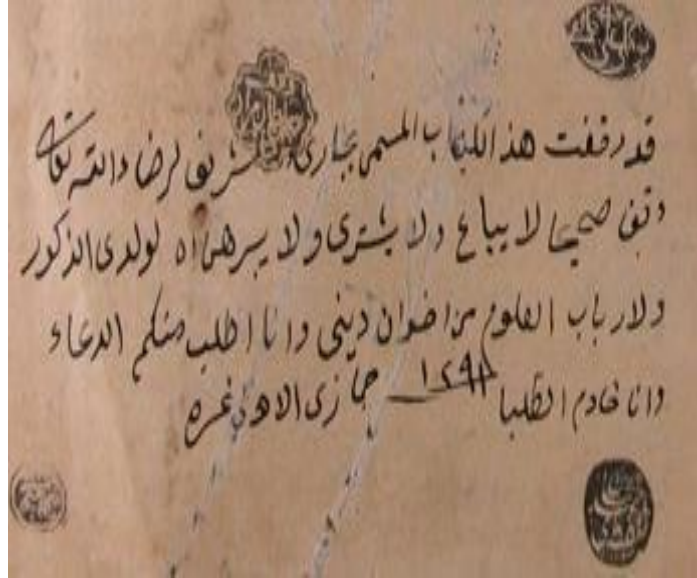 قد وقفت هذا الكتاب المسمى ببخارى شريف لرضاء الله تعالى
وقفا صحيحا لا يباع ولا يشترى ولا يرهن الا لولدى الذكور
ولارباب العلوم من اخوان دينى وانا اطلب منكم الدعاء
وانا خادم الطلبا ١٢٩٨ جمازى الاولى غره